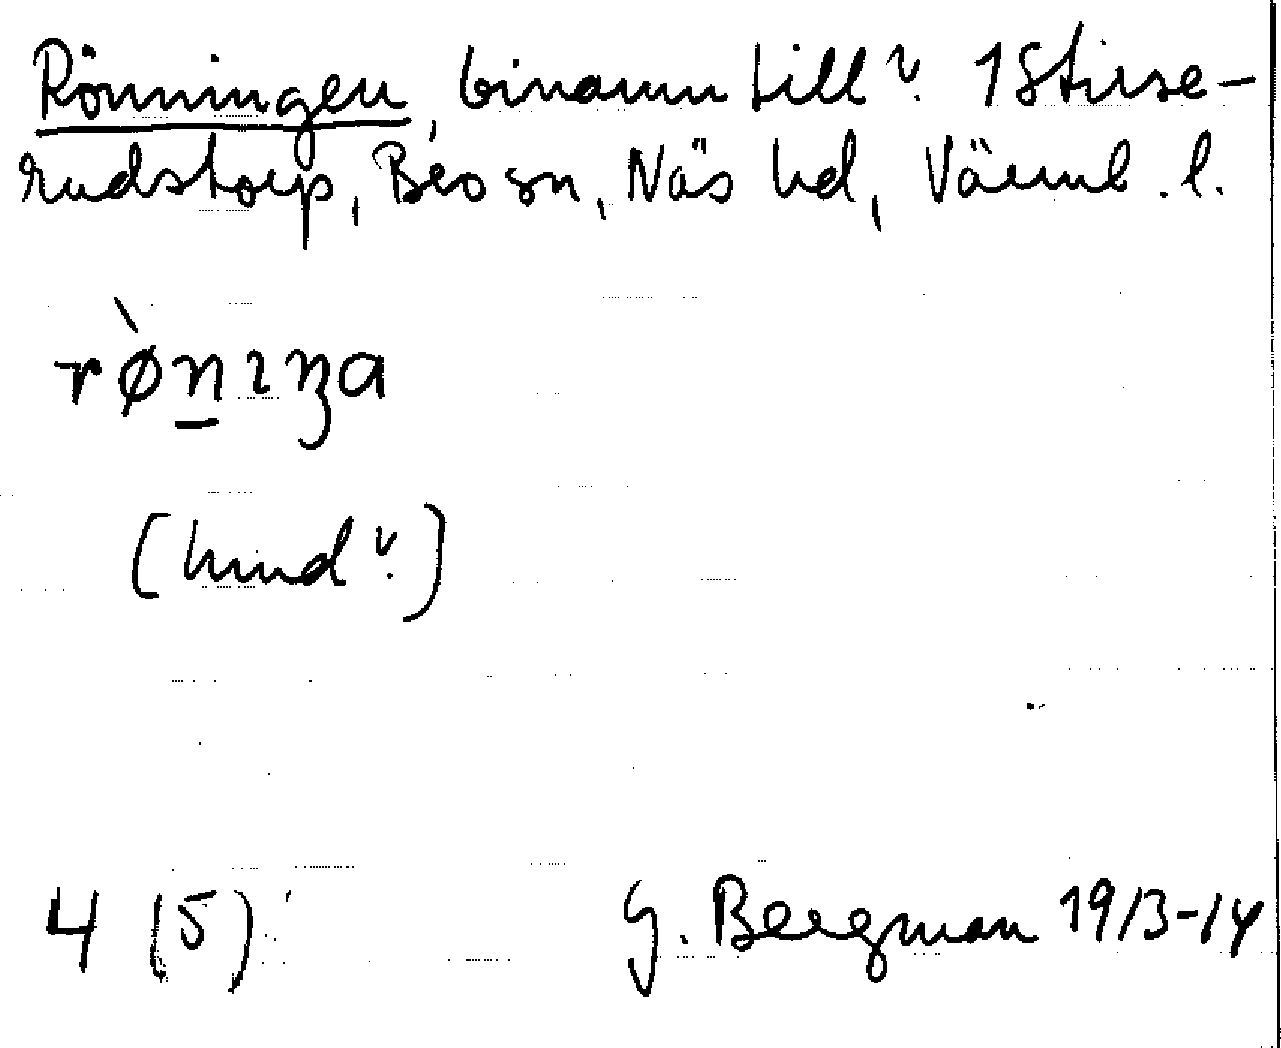 Rönningen, binamn till v. 1 Stirse-
rudstorp, By sn, Näs hd, Värml. l.
rø̀nıŋa
(hind v.)
4 (5)
G. Bergman 19/3-14